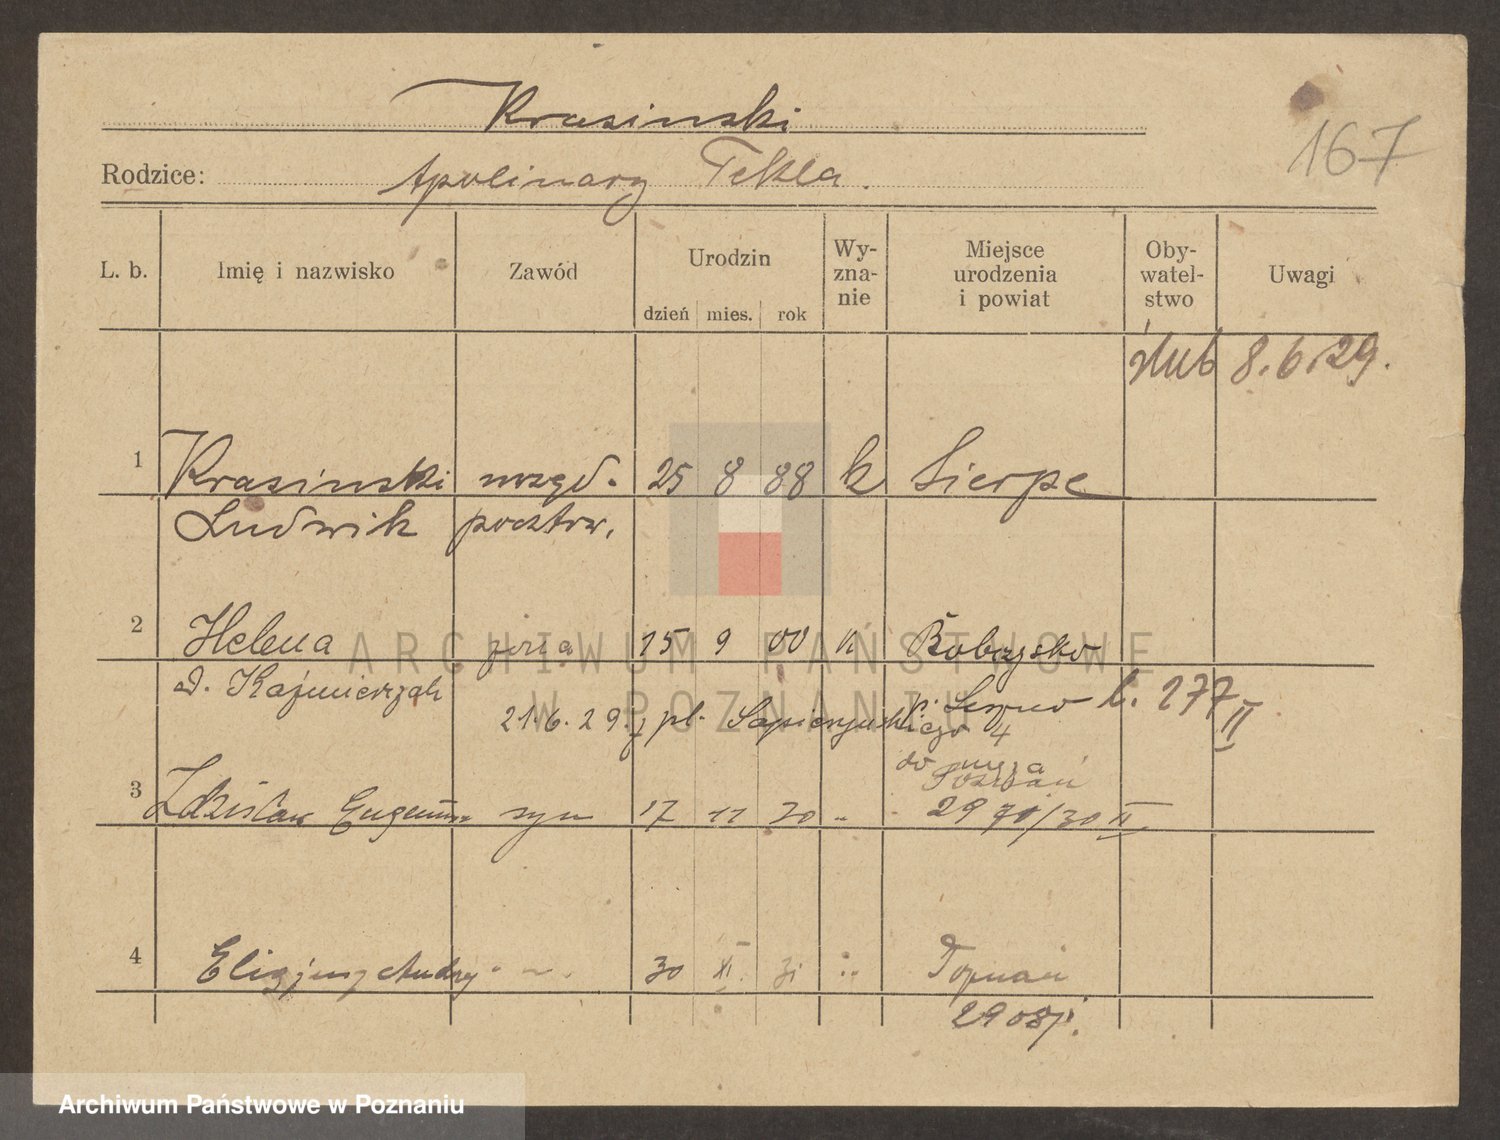 Krasinski
167
Rodzice: Apolinary Tekla.
L. b. Imię i nazwisko Zawód Urodzin Wy-zna-nie Miejsce urodzenia i powiat Oby-watel-stwo Uwagi
dzień mies. rok
ślub 8.6.29.
1 Krasinski urzęd. 25 8 88 k Sierpc
Ludwik pocztow.
2 Helena żona 15 9 00 k
d. Kaźmierczak p. Leszno b. 277 II
21.6.29. z pl. Sapieżyńskiego 4
do męża
Poznań
3 Zdzisław Eugeniusz syn 17 11 30 "
/30 II
4 Eligjusz Andrzej - " - 30 XI. 31 " Poznań
ARCHIWUM PAŃSTWOWE
W POZNANIU
Archiwum Państwowe w Poznaniu